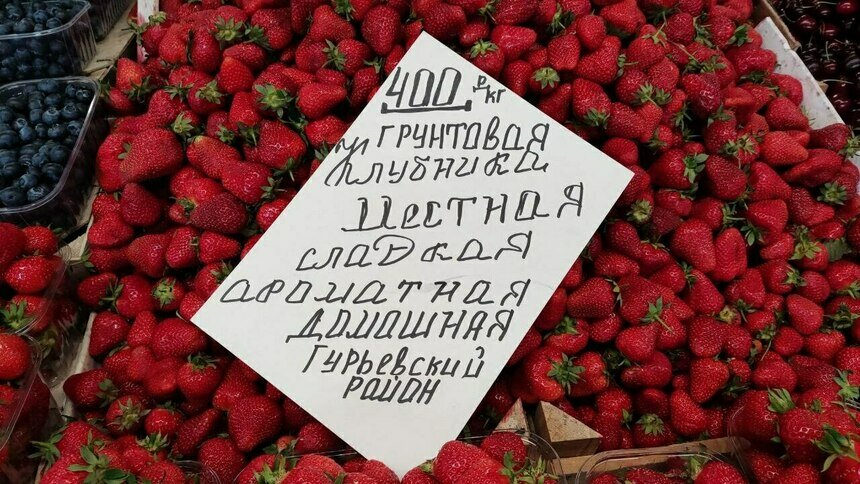 400 р/кг
ГРУНТОВАЯ
КЛУБНИКА
МЕСТНАЯ
СЛАДКАЯ
АРОМАТНАЯ
ДОМАШНАЯ
Гурьевский
РАЙОН